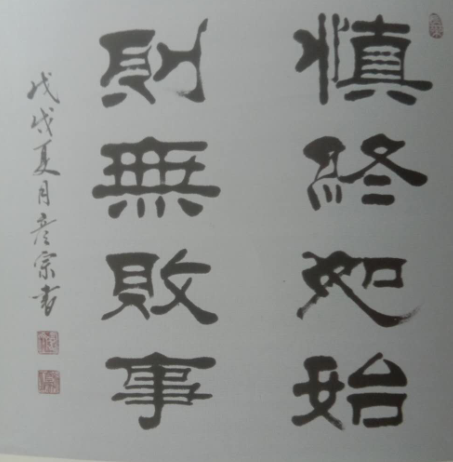 慎終如始
則無敗事
戊戌夏月彦宗書